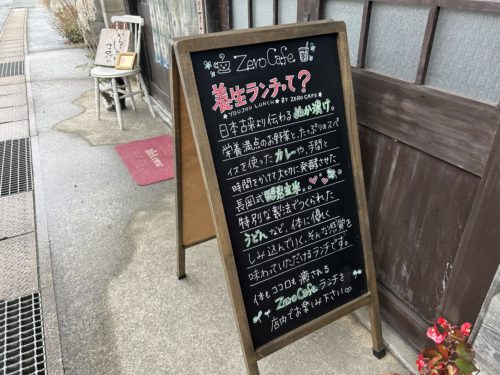 Zero Cafe
養生ランチって?
★YOUJOU LUNCH★ BY ZERO CAFE★
日本古来より伝わるぬか漬け。
栄養満点のお野菜と、たっぷりのスパ
イスを使ったカレーや、手間と
時間をかけて大切に発酵させた
長岡式酵素玄米。
特別な製法でつくられた
うどんなど、体に優しく
しみ込んでいく、そんな感覚を
味わっていただけるランチです。
体もココロも癒される
Zero Cafeランチを
店内でお楽しみ下さい♡